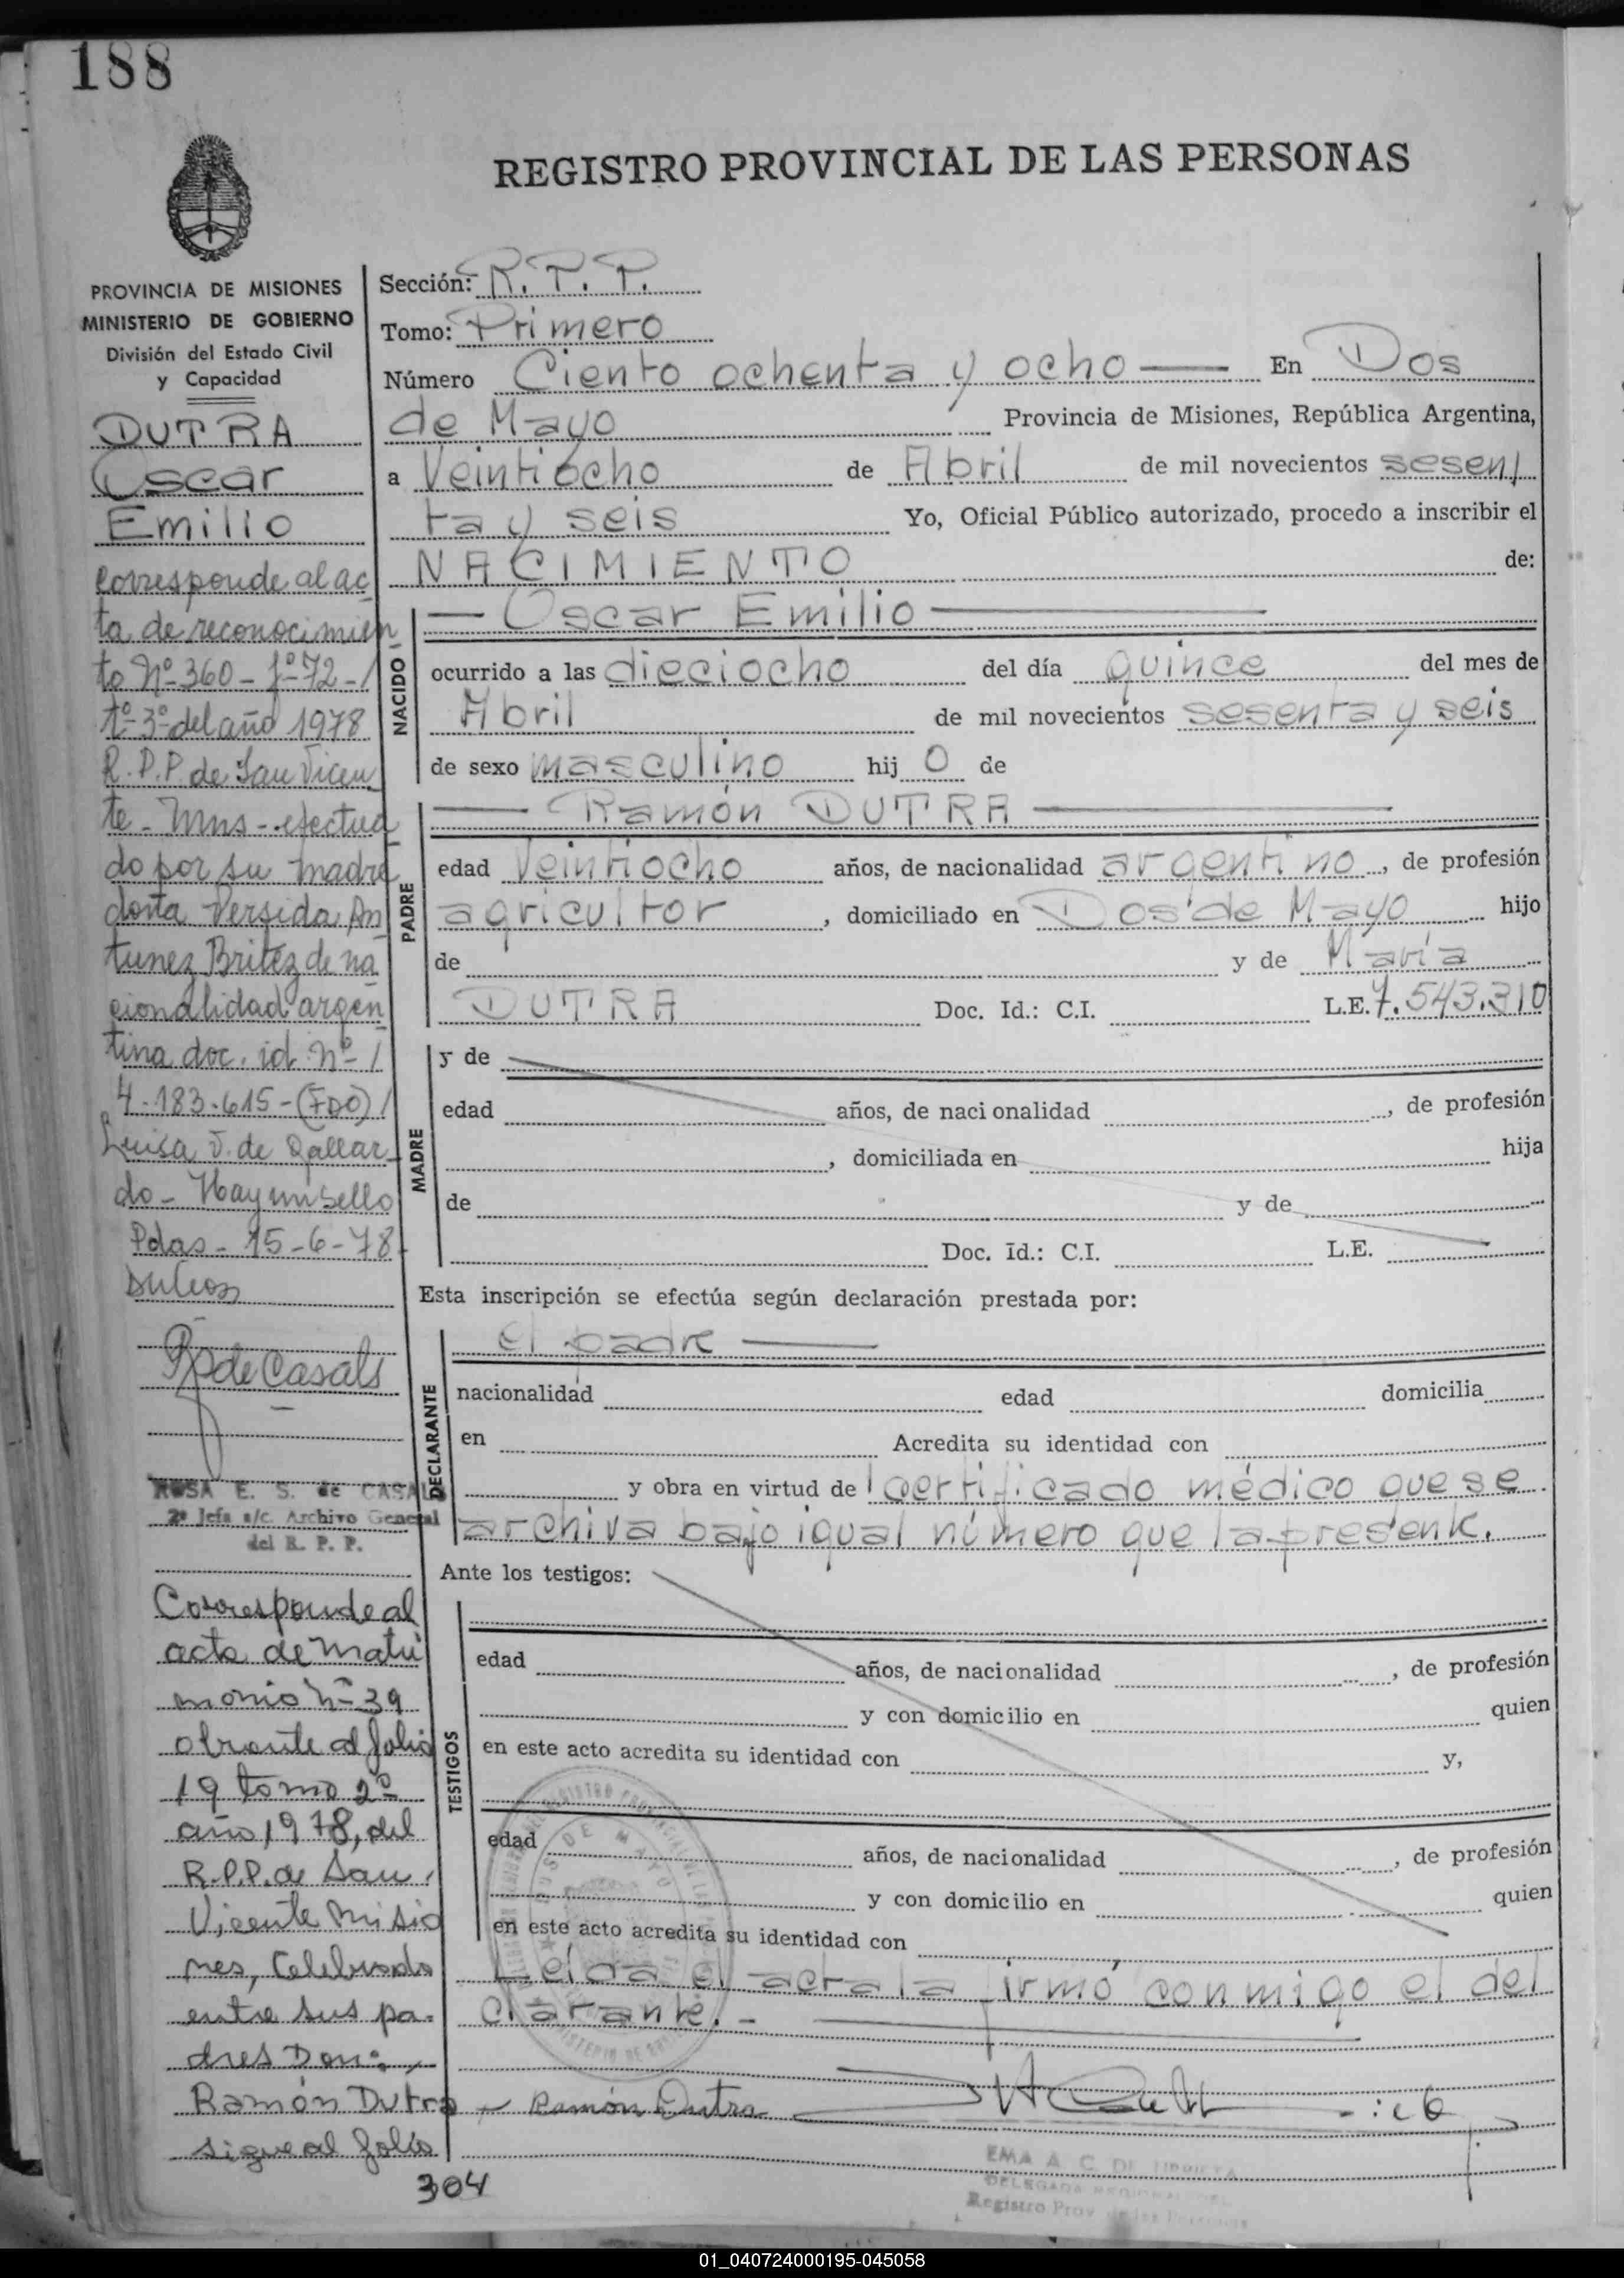 188
REGISTRO PROVINCIAL DE LAS PERSONAS
PROVINCIA DE MISIONES
MINISTERIO DE GOBIERNO
División del Estado Civil
y Capacidad
DUTRA
Oscar
Emilio
Corresponde al ac
ta de reconocimien
to Nº 360 - fº 72 - /
tº 3º del año 1978
R.P.P. de San Vicen
te - Mns - efectua
do por su madre
doña Versida An
tunez Britez de na
cionalidad argen
tina doc. id. Nº /
4.183.615 - (FDO) /
Luisa V. de Gallar
do - Hay un sello
Pdas - 15-6-78-
R de Casals
ROSA E. S. de CASALS
2ª Jefa a/c. Archivo General
del R. P. P.
Corresponde al
acta de matri
monio nº 39
obrante al folio
19 tomo 2º
año 1978, del
R.P.P. de San /
Vicente Misio
nes, Celebrado
entre sus pa-
dres Don:
Ramón Dutra
sigue al folio
304
Sección: R.P.P.
Tomo: Primero
Número Ciento ochenta y ocho — En Dos
de Mayo Provincia de Misiones, República Argentina,
a Veintiocho de Abril de mil novecientos sesen/
ta y seis Yo, Oficial Público autorizado, procedo a inscribir el
NACIMIENTO de:
NACIDO
— Oscar Emilio —
ocurrido a las dieciocho del día quince del mes de
Abril de mil novecientos sesenta y seis
de sexo masculino hij o de
PADRE
— Ramón DUTRA —
edad Veintiocho años, de nacionalidad argentino, de profesión
agricultor, domiciliado en Dos de Mayo hijo
de y de María
DUTRA Doc. Id.: C.I. L.E. 7.543.310
MADRE
y de
edad años, de nacionalidad , de profesión
, domiciliada en hija
de y de
Doc. Id.: C.I. L.E.
Esta inscripción se efectúa según declaración prestada por:
DECLARANTE
el padre —
nacionalidad edad domicilia
en Acredita su identidad con
y obra en virtud de certificado médico que se
archiva bajo igual número que la presente.
Ante los testigos:
TESTIGOS
edad años, de nacionalidad , de profesión
y con domicilio en quien
en este acto acredita su identidad con y,
edad años, de nacionalidad , de profesión
y con domicilio en quien
en este acto acredita su identidad con
Leída el acta la firmó conmigo el de/
clarante. -
Ramón Dutra
DOS DE MAYO
EMA A. C. DE
DELEGADA
Registro Prov. de las Personas
01_040724000195-045058